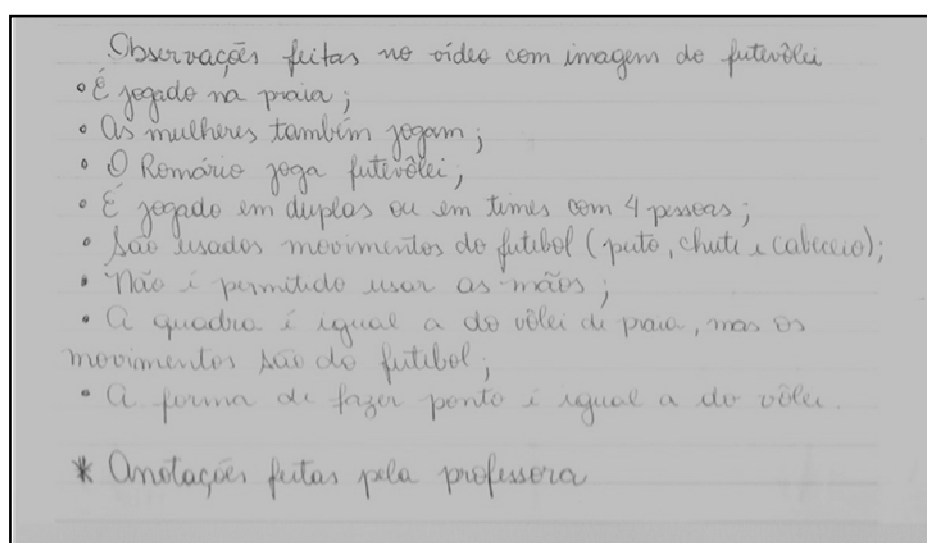 Observações feitas no vídeo com imagem do futevôlei
• É jogado na praia;
• As mulheres também jogam;
• O Romário joga futevôlei;
• É jogado em duplas ou em times com 4 pessoas;
• São usados movimentos do futebol (peito, chute e cabeceio);
• Não é permitido usar as mãos;
• A quadra é igual a do vôlei de praia, mas os
movimentos são do futebol;
• A forma de fazer ponto é igual a do vôlei.
* Anotações feitas pela professora